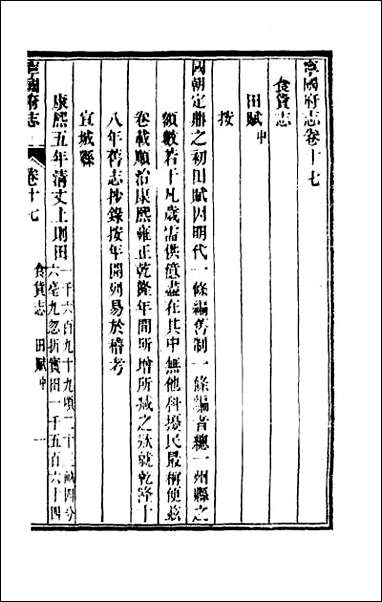 寧國府志卷十七
食貨志
田賦中
按
國朝定鼎之初田賦因明代一條編舊制一條編者總一州縣之
額數若干凡歲需供億盡在其中無他科擾民最稱便茲
卷載順治康熙雍正乾隆年間所增所減之欵就乾隆十
八年舊志抄錄按年開列易於稽考
宣城縣
康熙五年清丈上則田
一千六百九十九頃二十二畝四分
六毫九忽折實田一千五百六十四
寧國府志
卷十七
食貨志
田賦中
一